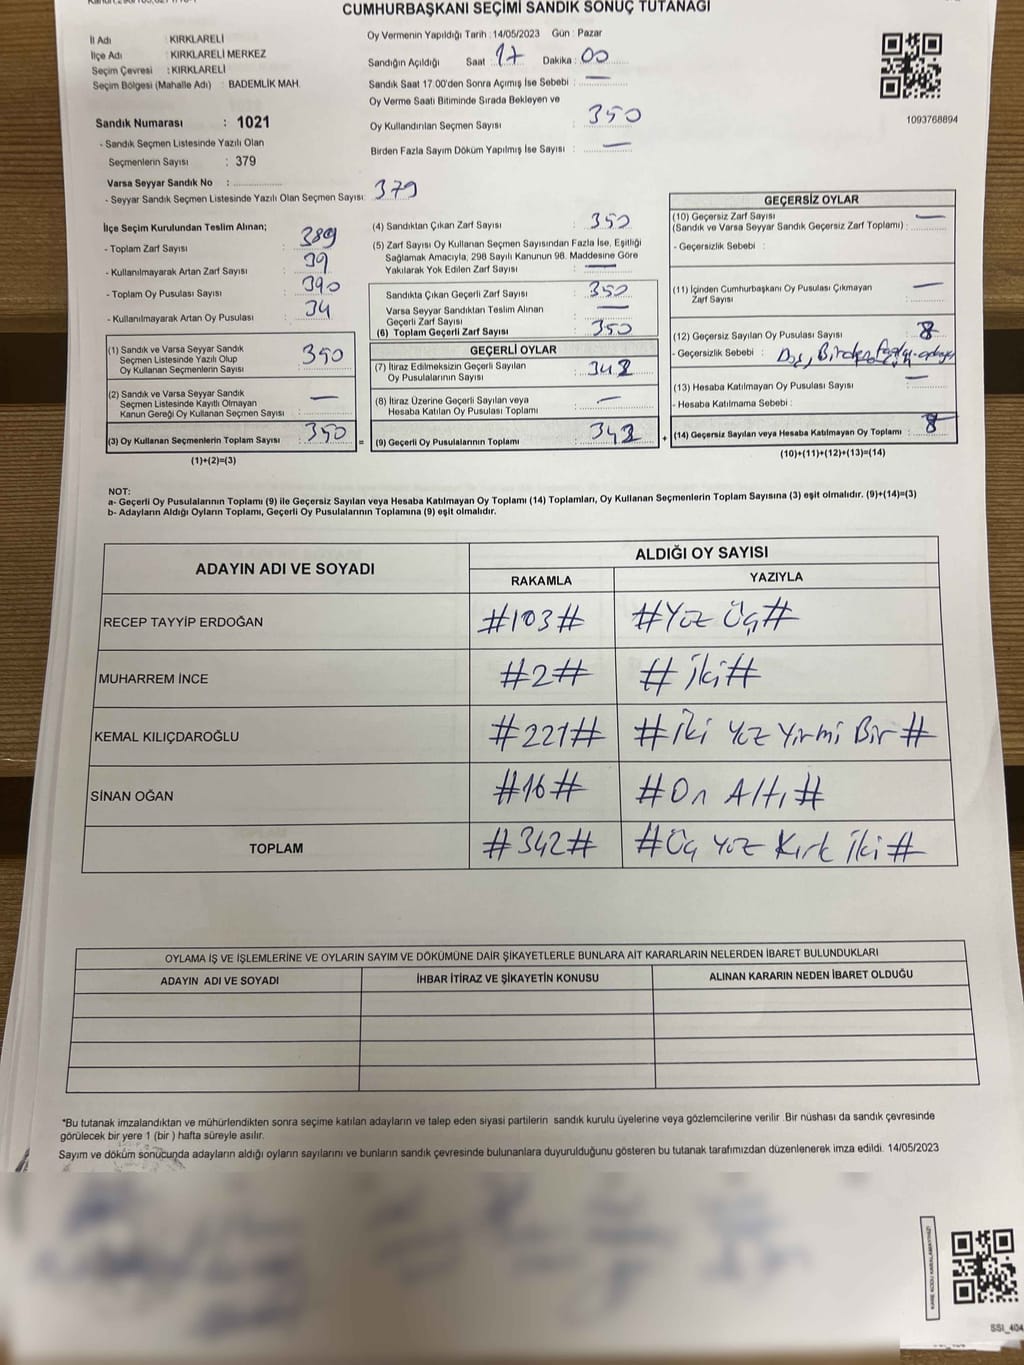 CUMHURBAŞKANI SEÇİMİ SANDIK SONUÇ TUTANAĞI
İl Adı : KIRKLARELİ
İlçe Adı : KIRKLARELİ MERKEZ
Seçim Çevresi : KIRKLARELİ
Seçim Bölgesi (Mahalle Adı) : BADEMLİK MAH.
Sandık Numarası : 1021
- Sandık Seçmen Listesinde Yazılı Olan
Seçmenlerin Sayısı : 379
Varsa Seyyar Sandık No :
- Seyyar Sandık Seçmen Listesinde Yazılı Olan Seçmen Sayısı: 379
Oy Vermenin Yapıldığı Tarih : 14/05/2023 Gün : Pazar
Sandığın Açıldığı Saat : 17 Dakika : 00
Sandık Saat 17.00'den Sonra Açımış İse Sebebi : —
Oy Verme Saati Bitiminde Sırada Bekleyen ve
Oy Kullandırılan Seçmen Sayısı : 350
Birden Fazla Sayım Döküm Yapılmış İse Sayısı : —
1093768894
İlçe Seçim Kurulundan Teslim Alınan;
- Toplam Zarf Sayısı : 389
- Kullanılmayarak Artan Zarf Sayısı : 39
- Toplam Oy Pusulası Sayısı : 390
- Kullanılmayarak Artan Oy Pusulası : 34
(1) Sandık ve Varsa Seyyar Sandık
Seçmen Listesinde Yazılı Olup
Oy Kullanan Seçmenlerin Sayısı : 350
(2) Sandık ve Varsa Seyyar Sandık
Seçmen Listesinde Kayıtlı Olmayan
Kanun Gereği Oy Kullanan Seçmen Sayısı : —
(3) Oy Kullanan Seçmenlerin Toplam Sayısı : 350
(1)+(2)=(3)
(4) Sandıktan Çıkan Zarf Sayısı : 350
(5) Zarf Sayısı Oy Kullanan Seçmen Sayısından Fazla İse, Eşitliği
Sağlamak Amacıyla, 298 Sayılı Kanunun 98. Maddesine Göre
Yakılarak Yok Edilen Zarf Sayısı : —
Sandıkta Çıkan Geçerli Zarf Sayısı : 350
Varsa Seyyar Sandıktan Teslim Alınan
Geçerli Zarf Sayısı : —
(6) Toplam Geçerli Zarf Sayısı : 350
=
GEÇERLİ OYLAR
(7) İtiraz Edilmeksizin Geçerli Sayılan
Oy Pusulalarının Sayısı : 342
(8) İtiraz Üzerine Geçerli Sayılan veya
Hesaba Katılan Oy Pusulası Toplamı : —
(9) Geçerli Oy Pusulalarının Toplamı : 342
+
GEÇERSİZ OYLAR
(10) Geçersiz Zarf Sayısı
(Sandık ve Varsa Seyyar Sandık Geçersiz Zarf Toplamı) : —
- Geçersizlik Sebebi :
(11) İçinden Cumhurbaşkanı Oy Pusulası Çıkmayan
Zarf Sayısı : —
(12) Geçersiz Sayılan Oy Pusulası Sayısı : 8
- Geçersizlik Sebebi : Birden fazla
(13) Hesaba Katılmayan Oy Pusulası Sayısı : —
- Hesaba Katılmama Sebebi :
(14) Geçersiz Sayılan veya Hesaba Katılmayan Oy Toplamı : 8
(10)+(11)+(12)+(13)=(14)
NOT:
a- Geçerli Oy Pusulalarının Toplamı (9) ile Geçersiz Sayılan veya Hesaba Katılmayan Oy Toplamı (14) Toplamları, Oy Kullanan Seçmenlerin Toplam Sayısına (3) eşit olmalıdır. (9)+(14)=(3)
b- Adayların Aldığı Oyların Toplamı, Geçerli Oy Pusulalarının Toplamına (9) eşit olmalıdır.
ADAYIN ADI VE SOYADI
ALDIĞI OY SAYISI
RAKAMLA YAZIYLA
RECEP TAYYİP ERDOĞAN #103# #Yüz Üç#
MUHARREM İNCE #2# #İki#
KEMAL KILIÇDAROĞLU #221# #İki Yüz Yirmi Bir#
SİNAN OĞAN #16# #On Altı#
TOPLAM #342# #Üç Yüz Kırk İki#
OYLAMA İŞ VE İŞLEMLERİNE VE OYLARIN SAYIM VE DÖKÜMÜNE DAİR ŞİKAYETLERLE BUNLARA AİT KARARLARIN NELERDEN İBARET BULUNDUKLARI
ADAYIN ADI VE SOYADI İHBAR İTİRAZ VE ŞİKAYETİN KONUSU ALINAN KARARIN NEDEN İBARET OLDUĞU
*Bu tutanak imzalandıktan ve mühürlendikten sonra seçime katılan adayların ve talep eden siyasi partilerin sandık kurulu üyelerine veya gözlemcilerine verilir .Bir nüshası da sandık çevresinde
görülecek bir yere 1 (bir ) hafta süreyle asılır.
Sayım ve döküm sonucunda adayların aldığı oyların sayılarını ve bunların sandık çevresinde bulunanlara duyurulduğunu gösteren bu tutanak tarafımızdan düzenlenerek imza edildi. 14/05/2023
KARE KODU KARALAMAYINIZ!
SSI_404